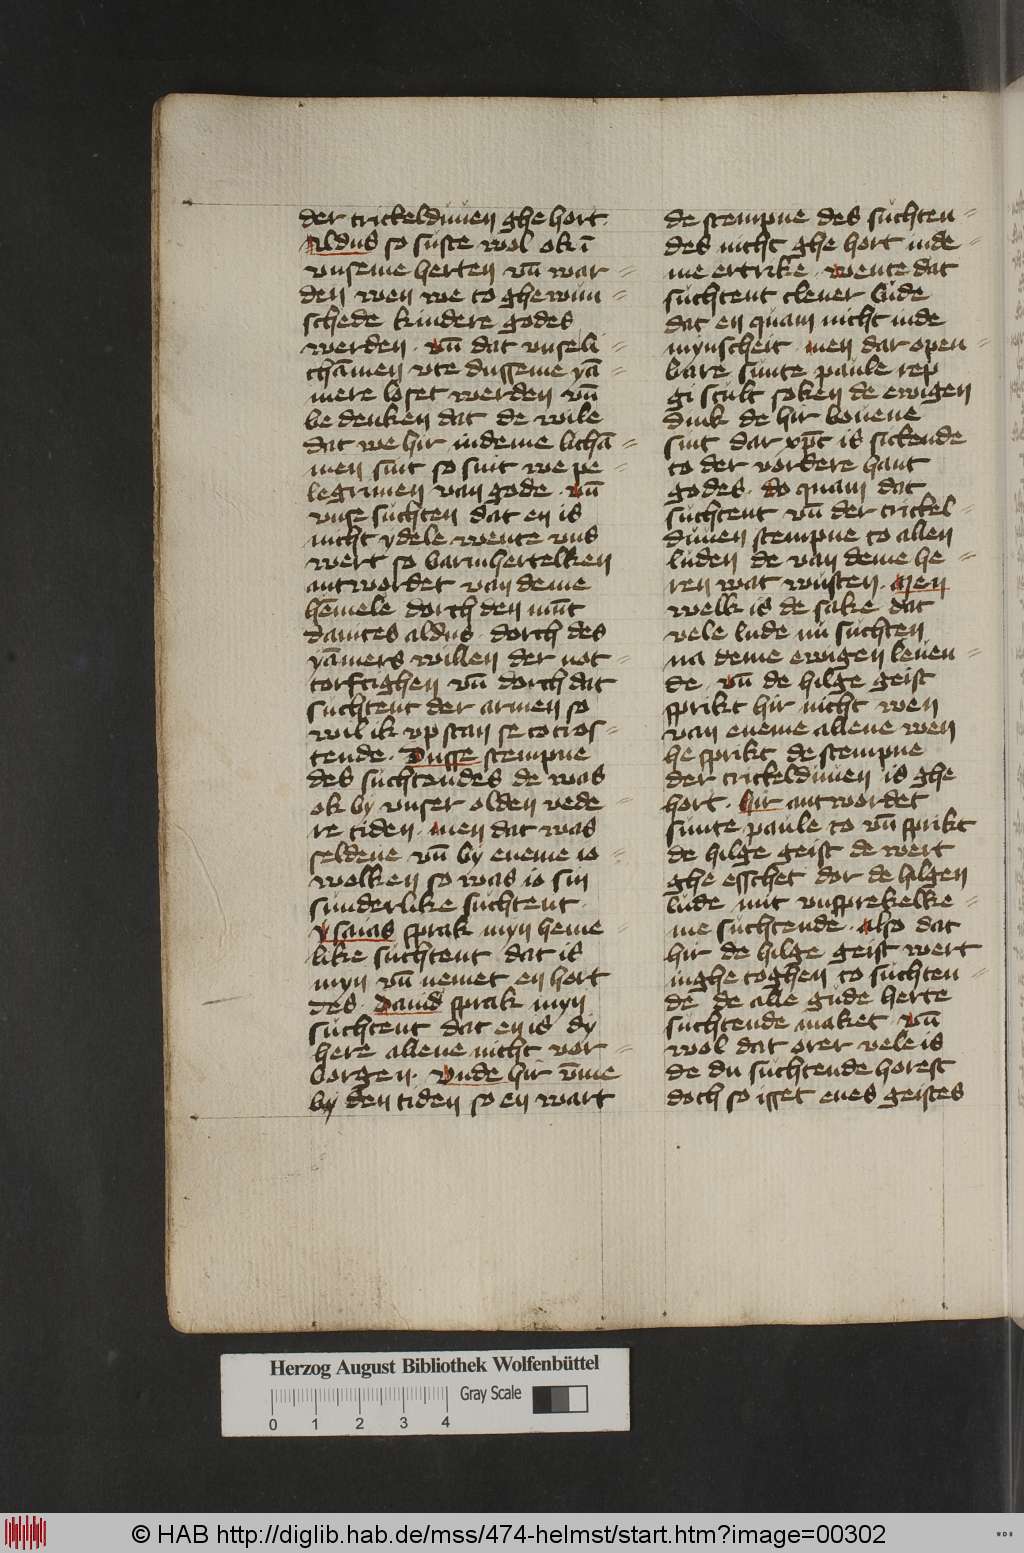 der trickelduuen ghe hort
aldus so sufte wol ok ī
vnseme herten vn̄ war =
den wen we to ghewun =
schede kindere godes
werden · vn̄ dat vnse li =
chāmen vte dusseme yā =
mere loset werden vn̄
be denken dat de wile
dat we hir indeme lichā =
men sint so sint we pe =
legrimen van gode · vn̄
vnse suchten dat en is
nicht ydele wente vns
wert so barmhertelken
antwordet van deme
hēmele dorch den mūt
dauites aldus · dorch des
yāmers willen der not =
torftighen vn̄ dorch dat
suchtent der armen so
wil ik vp stan se to tros =
tende · Dusse stempne
des suchtendes de was
ok by vnser olden vede =
re tiden · men dat was
seldene vn̄ by eneme io =
welken so was io sin
sunderlike suchtent
Ysaias sprak myn heme =
like suchtent dat is
myn vn̄ nemet en hort
des · Dauid sprak myn
suchtent dat en is dy
here allene nicht vor =
borgen · vnde hir v̄me
by den tiden so en wart
de stempne des suchten =
des nicht ghe hort inde =
me ertrike · wente dat
suchtent cleuer lude
dat en quam nicht inde
mynscheit · men dar open =
bare sunte paule rep
gi scult soken de ewigen
dink de hir bouene
sint dar xp̄c is sittende
to der vordere hant
godes · do quam dat
suchtent vn̄ der trickel =
duuen stempne to allen
luden de van deme he =
ren wat wusten · Men
welk is de sake dat
vele lude nu suchten
na deme ewigen leuen =
de · vn̄ de hilge geist
sprikt hir nicht wen
van eneme allene wen
he sprikt de stempne
der trickelduuen is ghe
hort · hir antwordet
sunte paule to vn̄ sprikt
de hilge geist de wert
ghe esschet vor de hilgen
lude mit vnsprekelke =
me suchtende · also dat
hir de hilge geist wert
inghe toghen to suchten =
de de alle gude herte
suchtende maket · vn̄
wol dat orer vele is
de du suchtende horest
doch so isset enes geistes
Herzog August Bibliothek Wolfenbüttel
Gray Scale
0 1 2 3 4
© HAB http://diglib.hab.de/mss/474-helmst/start.htm?image=00302